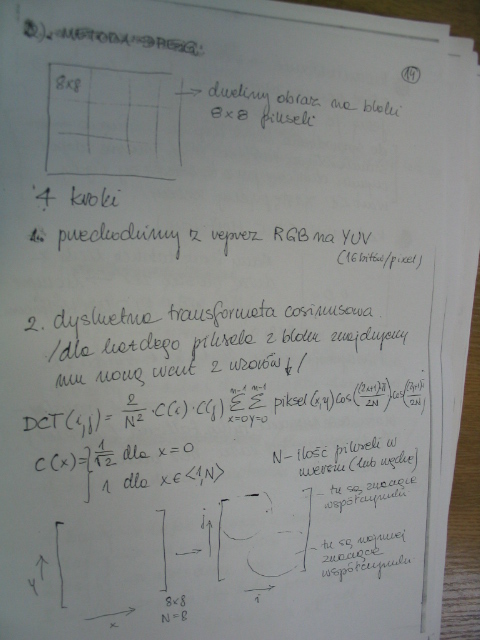 2.) METODA JPEG:
14
8x8 → dzielimy obraz na bloki
8x8 pikseli
4 kroki
1. przechodzimy z reprez RGB na YUV
(16 bitów/pixel)
2. dyskretna transformata cosinusowa
/dla każdego piksela z bloku znajdujemy
mu nową wart z wzorów ↓/
DCT(i,j) = 2/N² · C(i) · C(j) Σ Σ piksel(x,y) cos((2x+1)iπ/2N) cos((2y+1)jπ/2N)
C(x) = 1/√2 dla x=0
1 dla x∈<1,N>
N – ilość pikseli w
wierszu (lub
tu są znaczące
współczynniki
tu są najmniej
znaczące
współczynniki
y
x
8x8
N=8
j
i